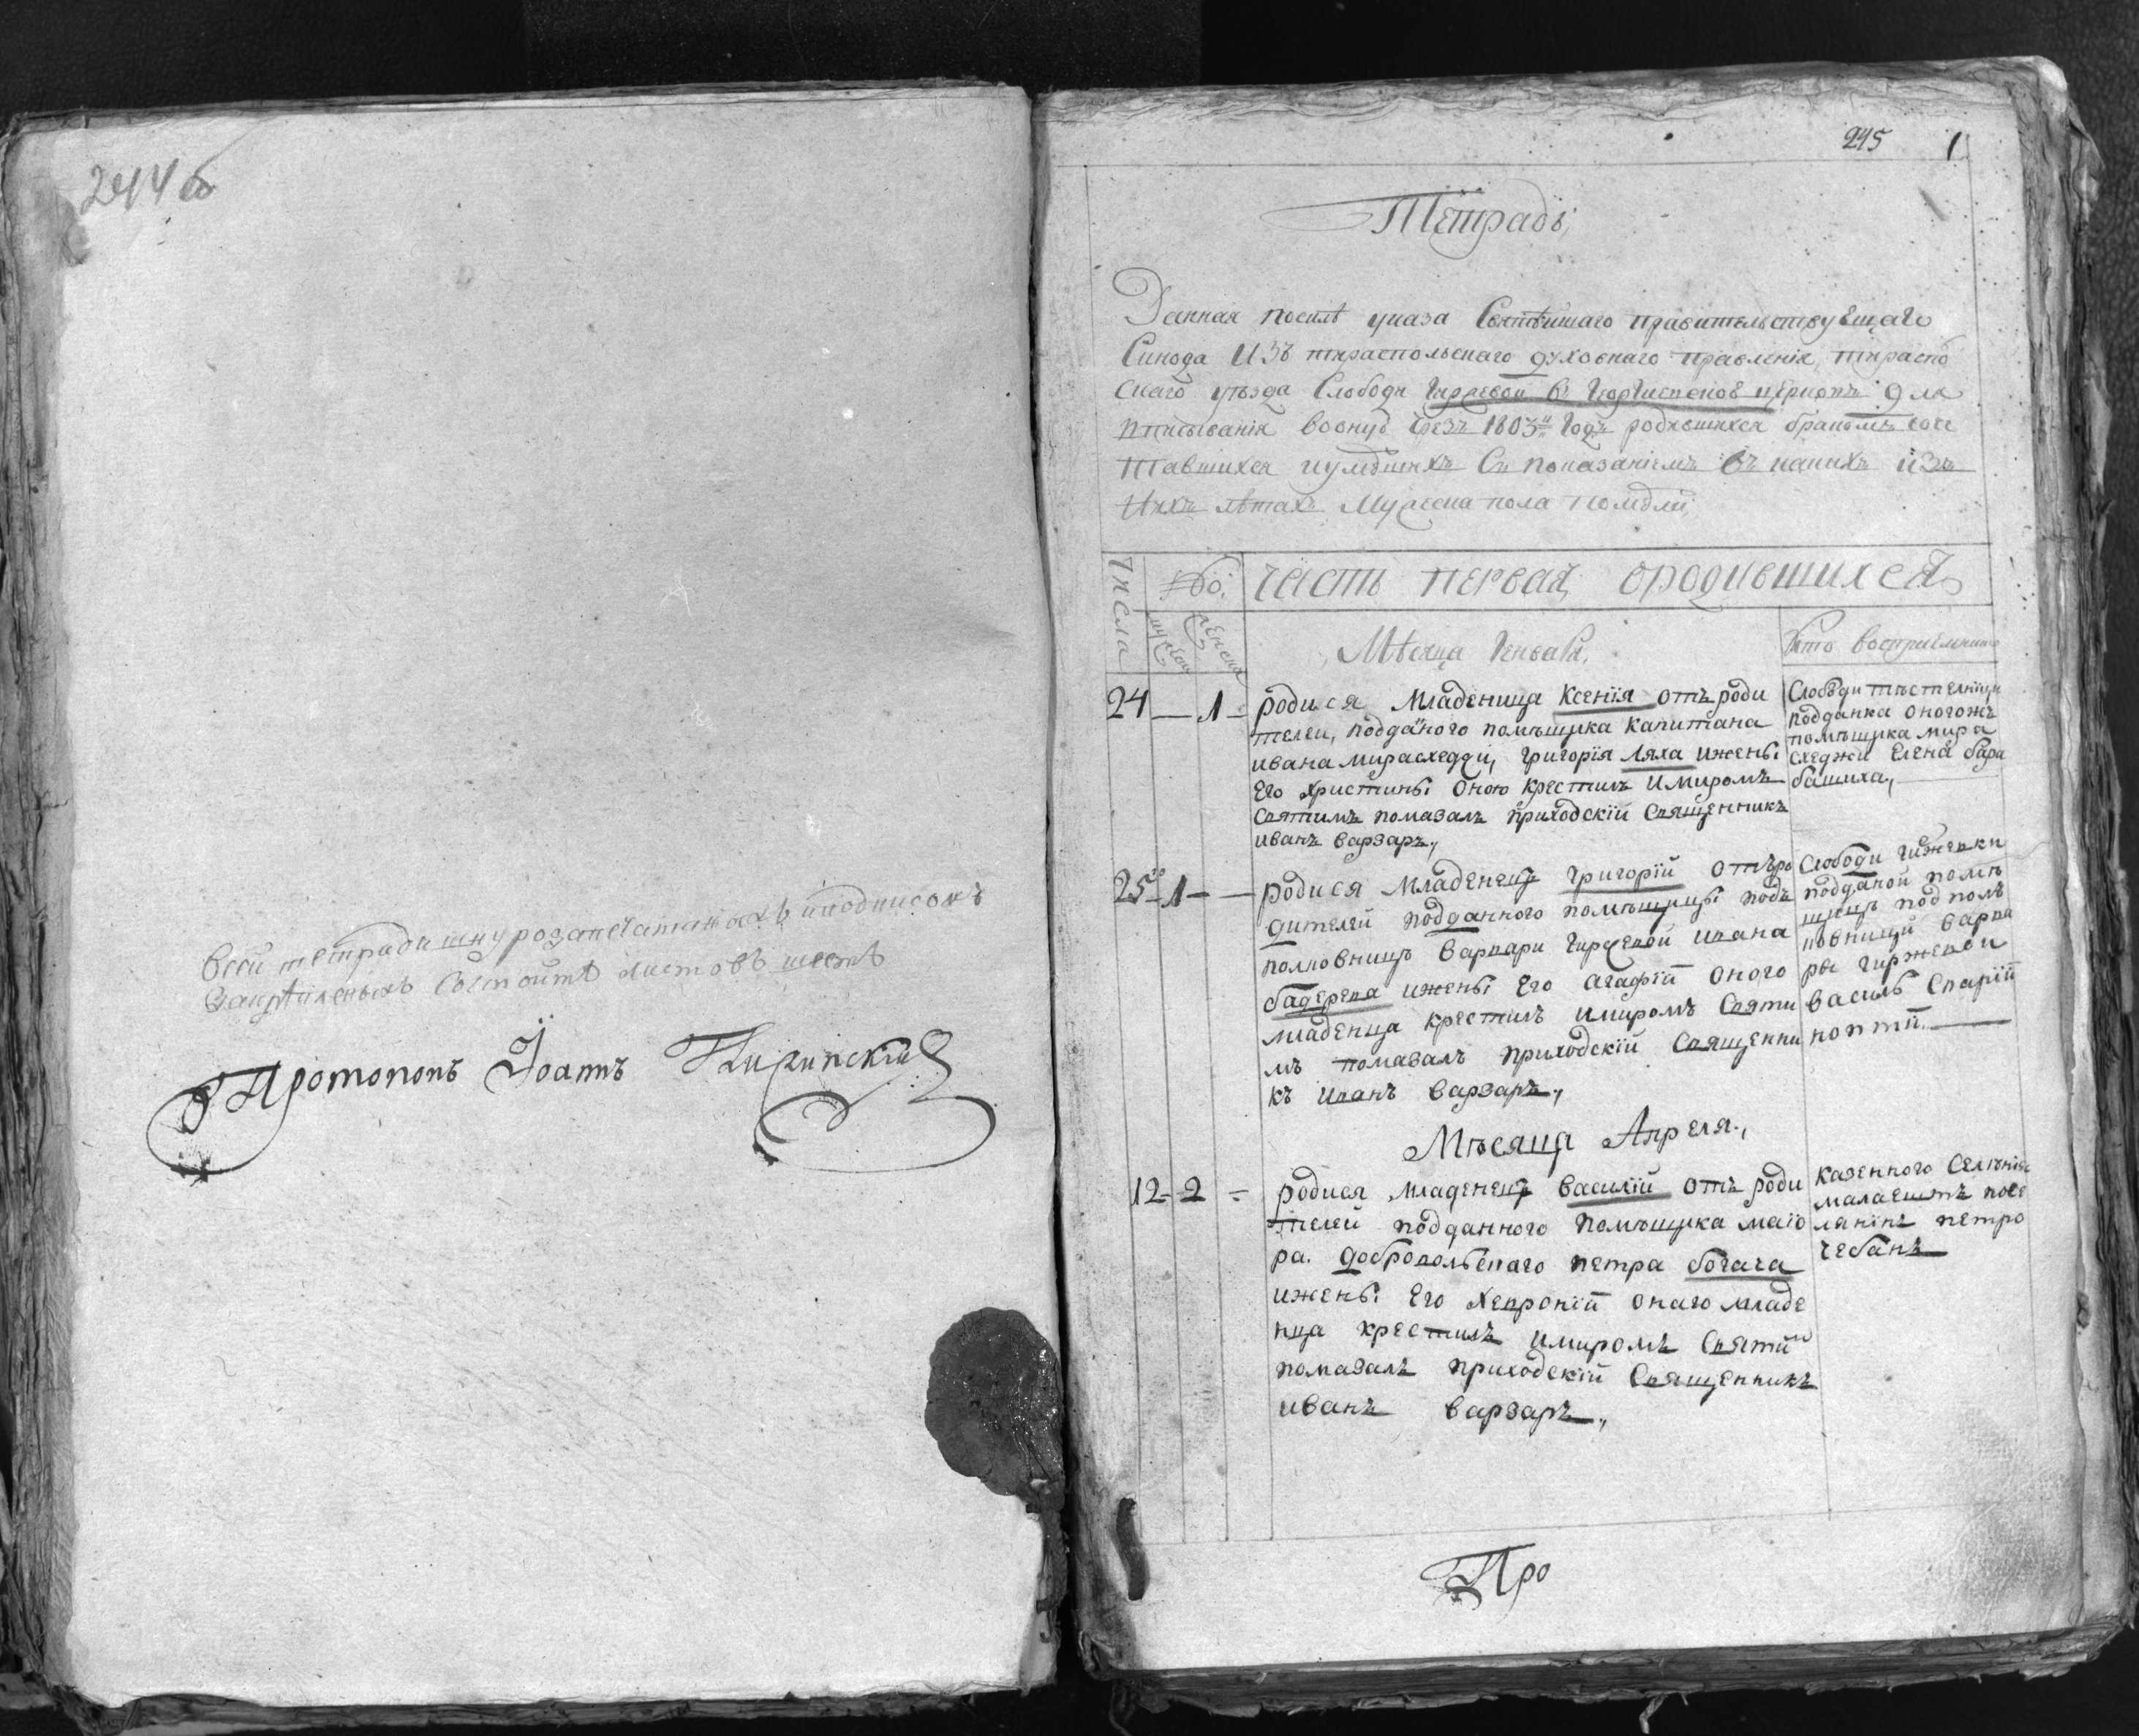 244 об
Всей тетради шнурозапечатанахъ иподписомъ
Закрѣпленыхъ Состоитъ листовъ шесть
Протопопъ Іоаннъ
245 1
Тетрадь,
Данная посилѣ указа Святѣйшаго правительствующаго
Синода Изъ тираспольскаго духовнаго правленія, тираспо
скаго уѣзда Слободи въ церковъ для
вписыванія воонуб чрезъ 1803й Годъ родившихся бракомъ соче
тавшихся иумѣршихъ Съ показаніемъ въ какихъ изъ
Нихъ лѣтахъ Мужеска пола
Числа
мужеск
женска
часть первая, ородившихся
Мѣсяца Генваря,
Кто восприемники
24 — 1 — родися младеница Ксенія отъ роди
телеи, подданого помѣщика капитана
ивана мирасхеджи, григорія ляха ижены
Его христины оною крестилъ имиромъ
святимъ помазалъ приходскій священникъ
иванъ варзаръ,
Слободи
подданка оногожъ
помѣщика мира
схеджи Елена бара
башиха,
25 — 1 — — родися младенецъ григорій отъро
дителей подданного помѣщицы подъ
полковницъ варвари гиржевой ивана
бадерева ижены Его агафій оного
младенца крестилъ имиромъ святи
мъ помазалъ приходскій священни
къ иванъ варзаръ,
Слободи гижевки
подданой помѣ
щицъ под полъ
ковницй варва
ры гиржевои
василь Спарій
Мѣсяца Апреля.,
12 = 2 = родися младенецъ василій отъ роди
телей подданного помѣщика маіо
ра. добровольскаго петра богача
ижены Его хевроній онаго младе
нца крестилъ имиромъ святи
помазалъ приходскій священникъ
иванъ варзаръ,
казенного селенія
малаештъ посе
лянінъ петро
чебанъ
Про